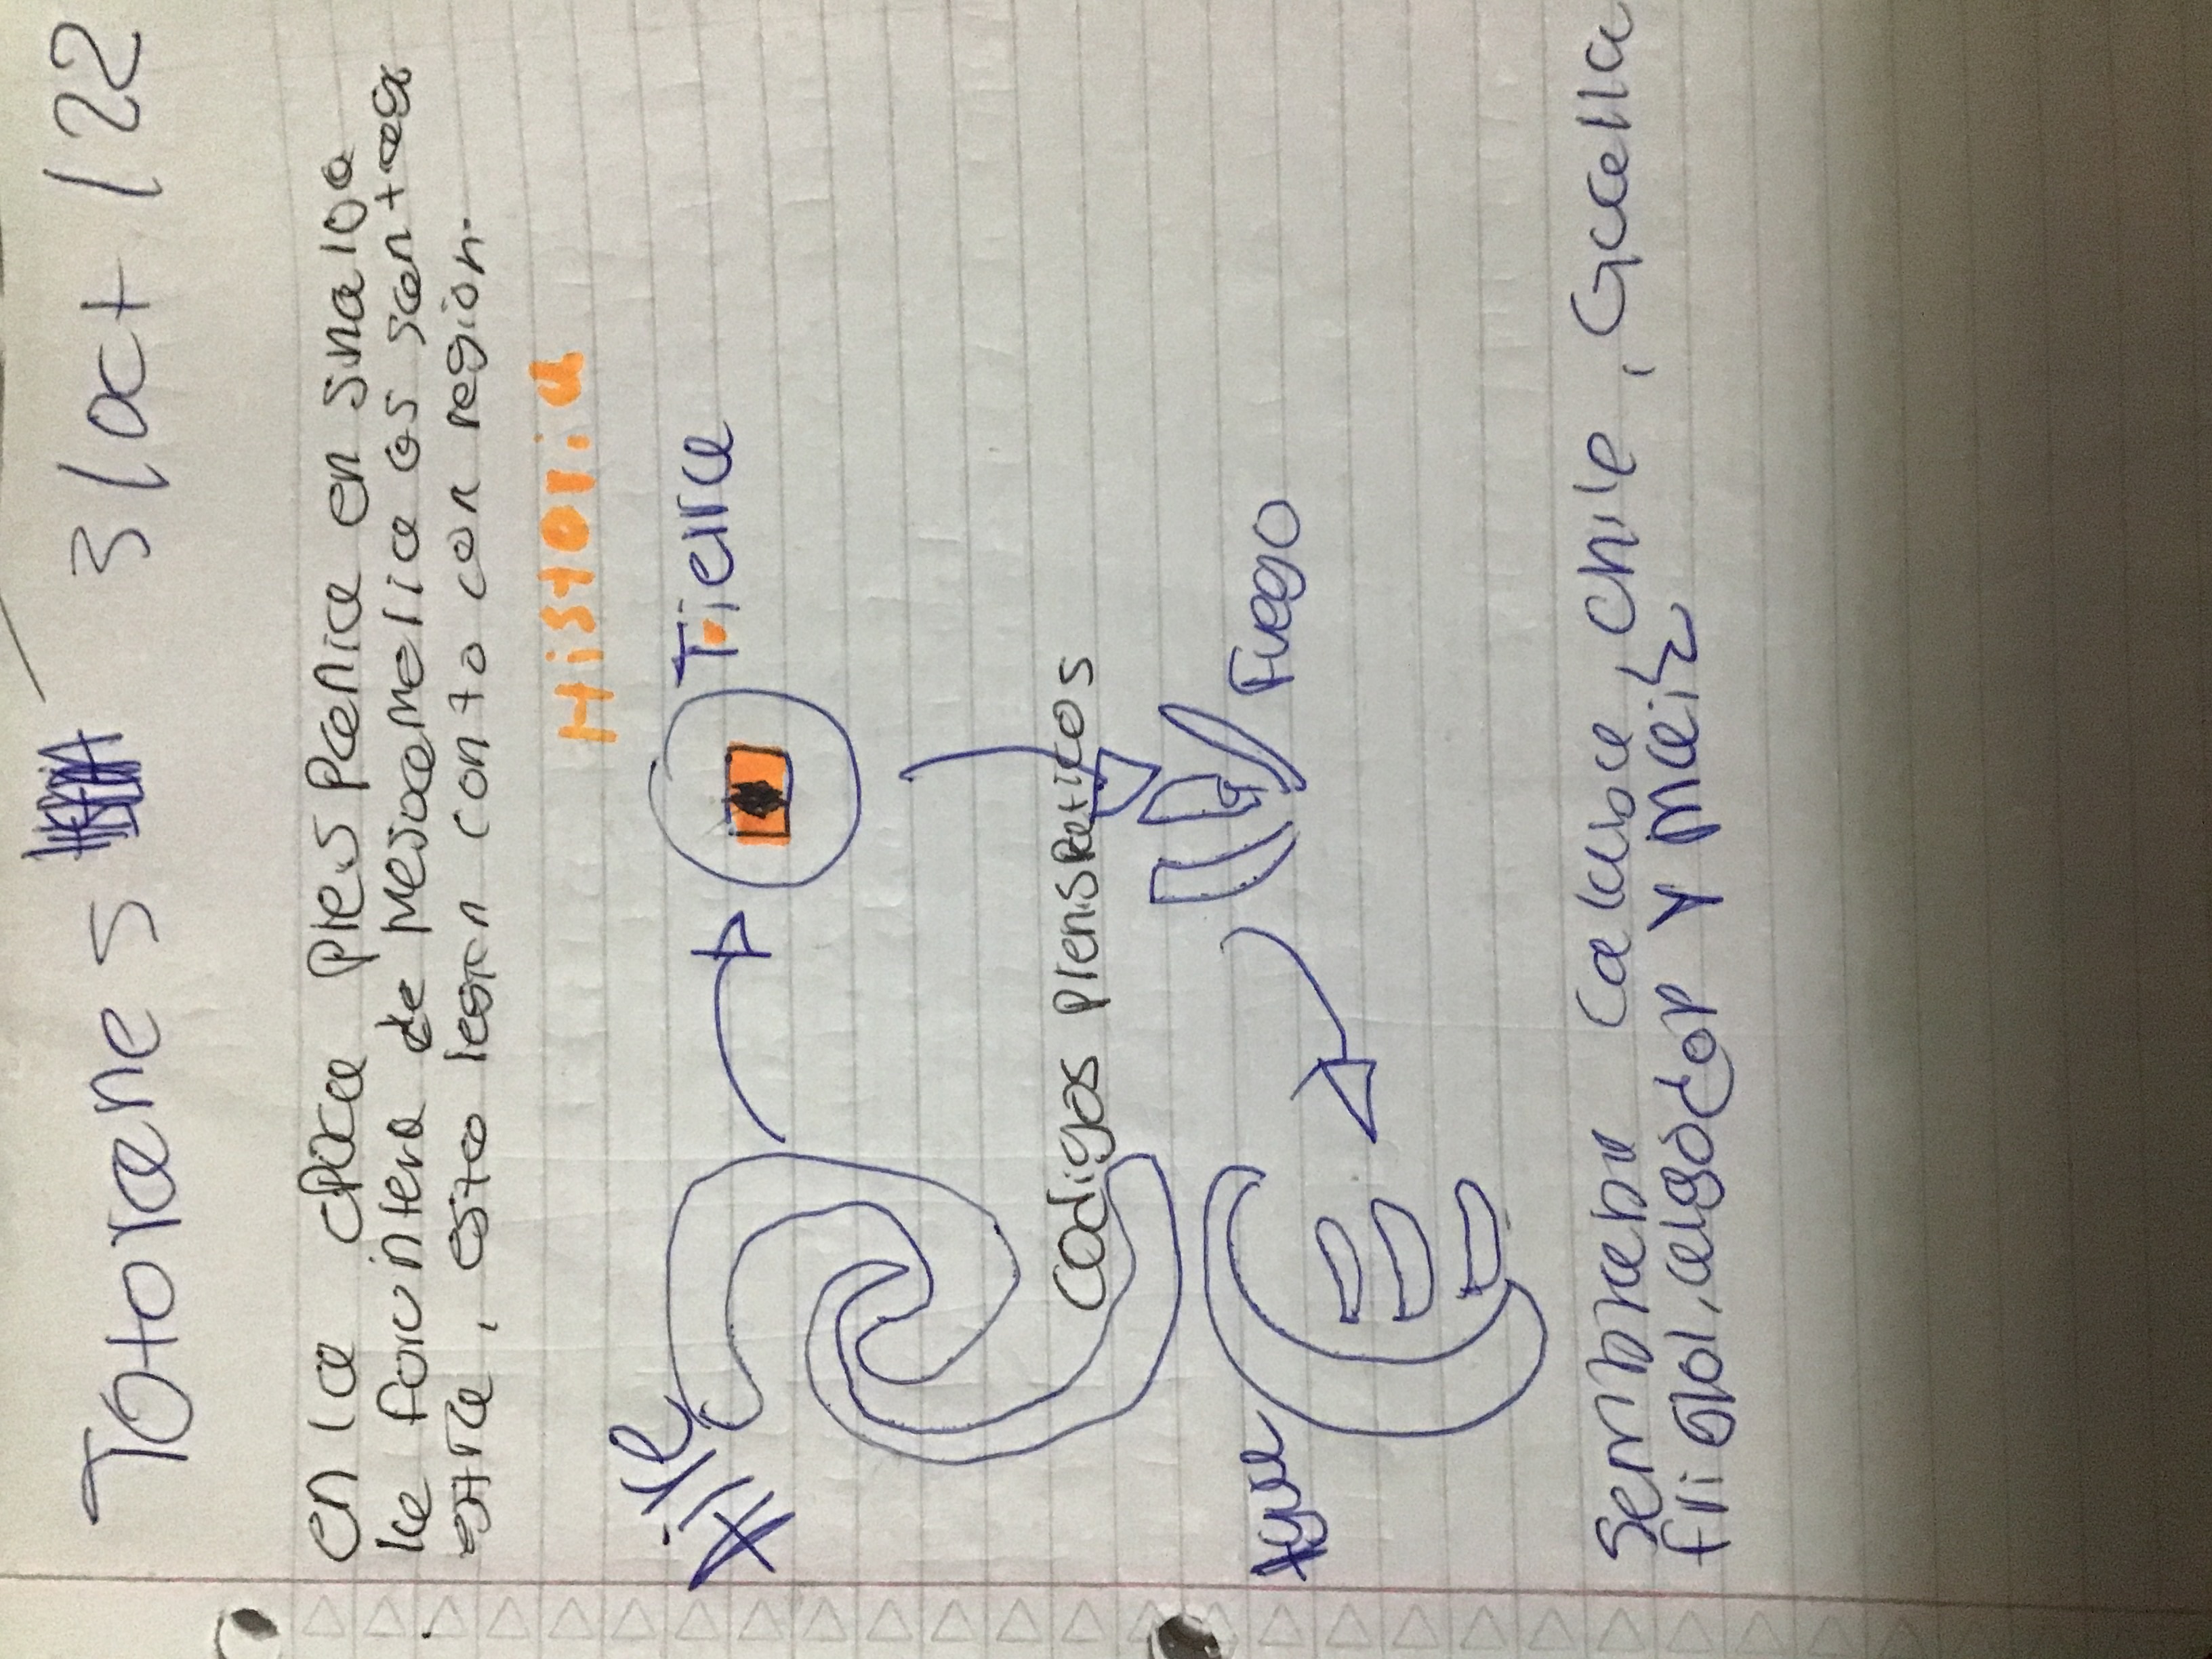 Totorames 31 oct 22
En la epoca prespanica en sinaloa
la forontera de mesoamerica es santaga
estra, esto lesan conto con region.
Historia
Aire
Tierra
Codigos Prenispaticos
Agua
Fuego
Sembraban Calabaza, chile, Gacella
frigol, algodor y maiz